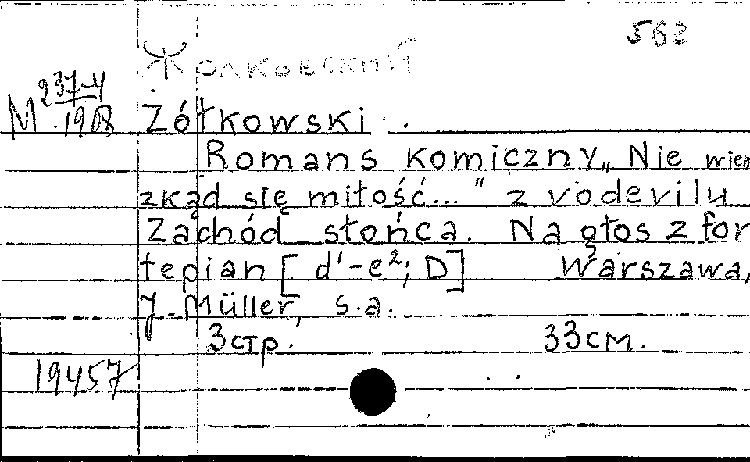 562
Жолковский
M 237-4
1908
Żółkowski.
Romans komiczny „Nie wiem
zkąd się miłość..." z vodevilu
Zachód słońca. Na głos z for
tepian [d'-e²; D] Warszawa,
J. Müller, s.a.
3 стр. 33 см.
19457